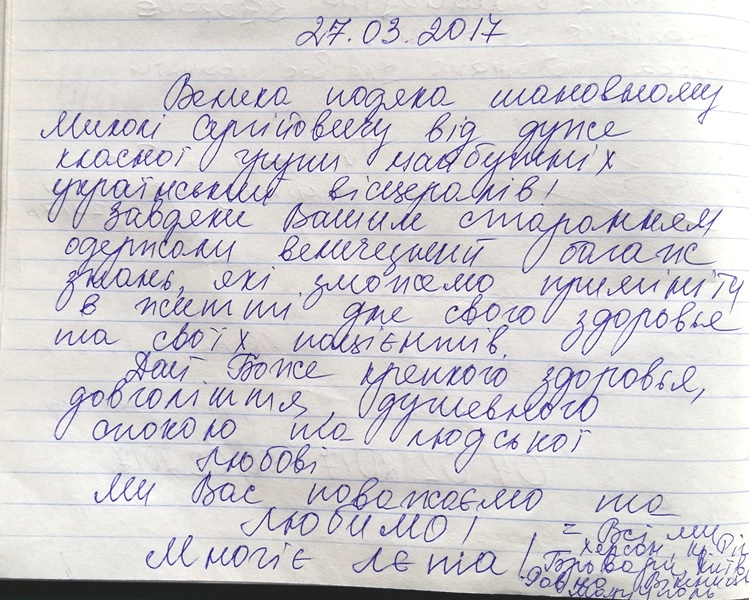 27.03.2017
Велика подяка шановному
Миколі Сергійовичу від дуже
класної групи майбутніх
українських вісцералів!
Завдяки Вашим старанням
одержали величезний багаж
знань, які зможемо примініть
в житті для свого здоровья
та своїх пацієнтів.
Дай Боже крепкого здоровья,
довголіття, душевного
спокою та людської
любові
Ми Вас поважаємо та
любимо!
Многіє лєта!
= Всі ми
Херсон, Кр. Ріг
Бровари, Київ
Вінниця